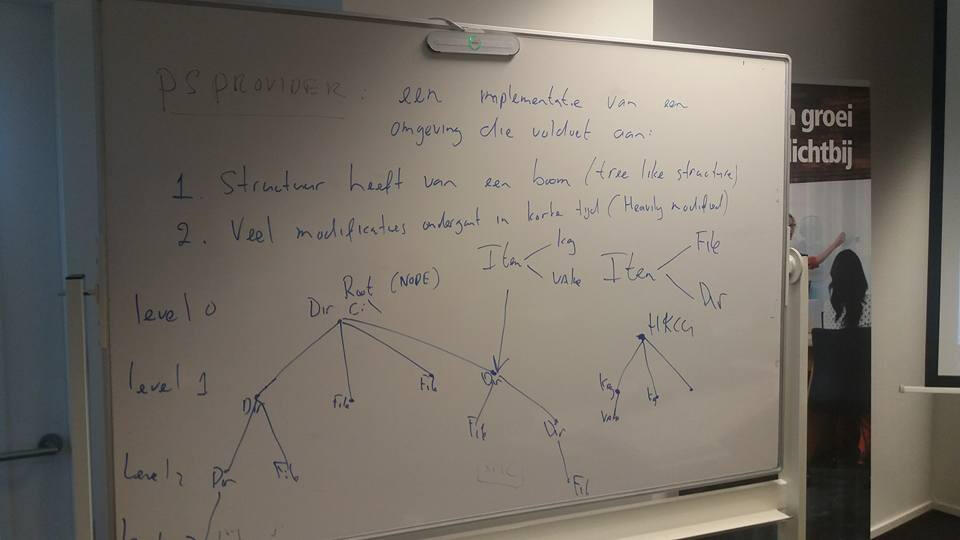 PS PROVIDER : een implementatie van een
omgeving die voldoet aan:
1. Structuur heeft van een boom (tree like structure)
2. Veel modificaties ondergaat in korte tijd (Heavily modified)
Item key value
Item File Dir
Root (NODE)
level 0 Dir C:\ HKCU
level 1 Dir File File Dir key key
value
File Dir
Level 2 Dir File File
n groei
lichtbij